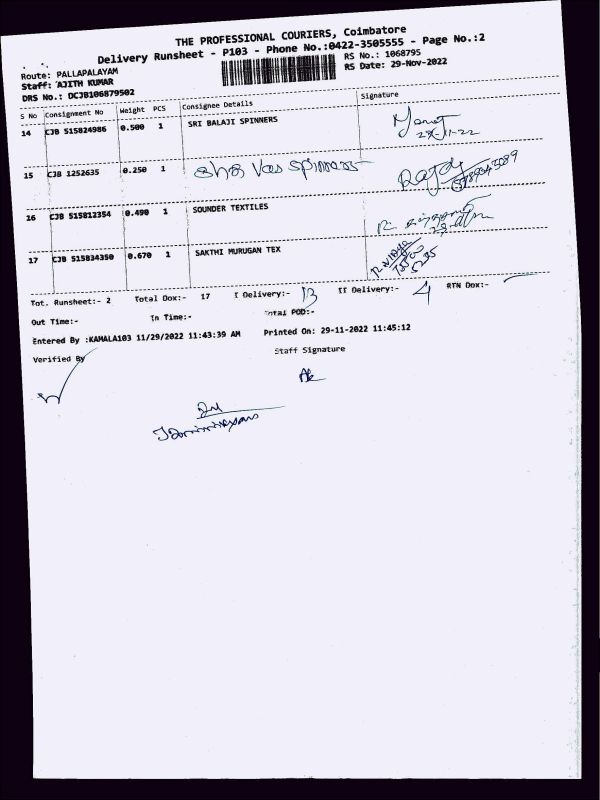 THE PROFESSIONAL COURIERS, Coimbatore
Delivery Runsheet - P103 - Phone No.:0422-3505555 - Page No.:2
Route: PALLAPALAYAM
RS No.: 1068795
Staff: AJITH KUMAR
RS Date: 29-Nov-2022
DRS No.: DCJB106879502
S No Consignment No Weight PCS Consignee Details Signature
14 CJB 515824986 0.500 1 SRI BALAJI SPINNERS
15 CJB 1252635 0.250 1 Spinners
16 CJB 515812354 0.490 1 SOUNDER TEXTILES
17 CJB 515834350 0.670 1 SAKTHI MURUGAN TEX
Tot. Runsheet:- 2 Total Dox:- 17 I Delivery:- 13 II Delivery:- 4 RTN Dox:-
Out Time:- In Time:- Total POD:-
Entered By :KAMALA103 11/29/2022 11:43:39 AM Printed On: 29-11-2022 11:45:12
Verified By Staff Signature